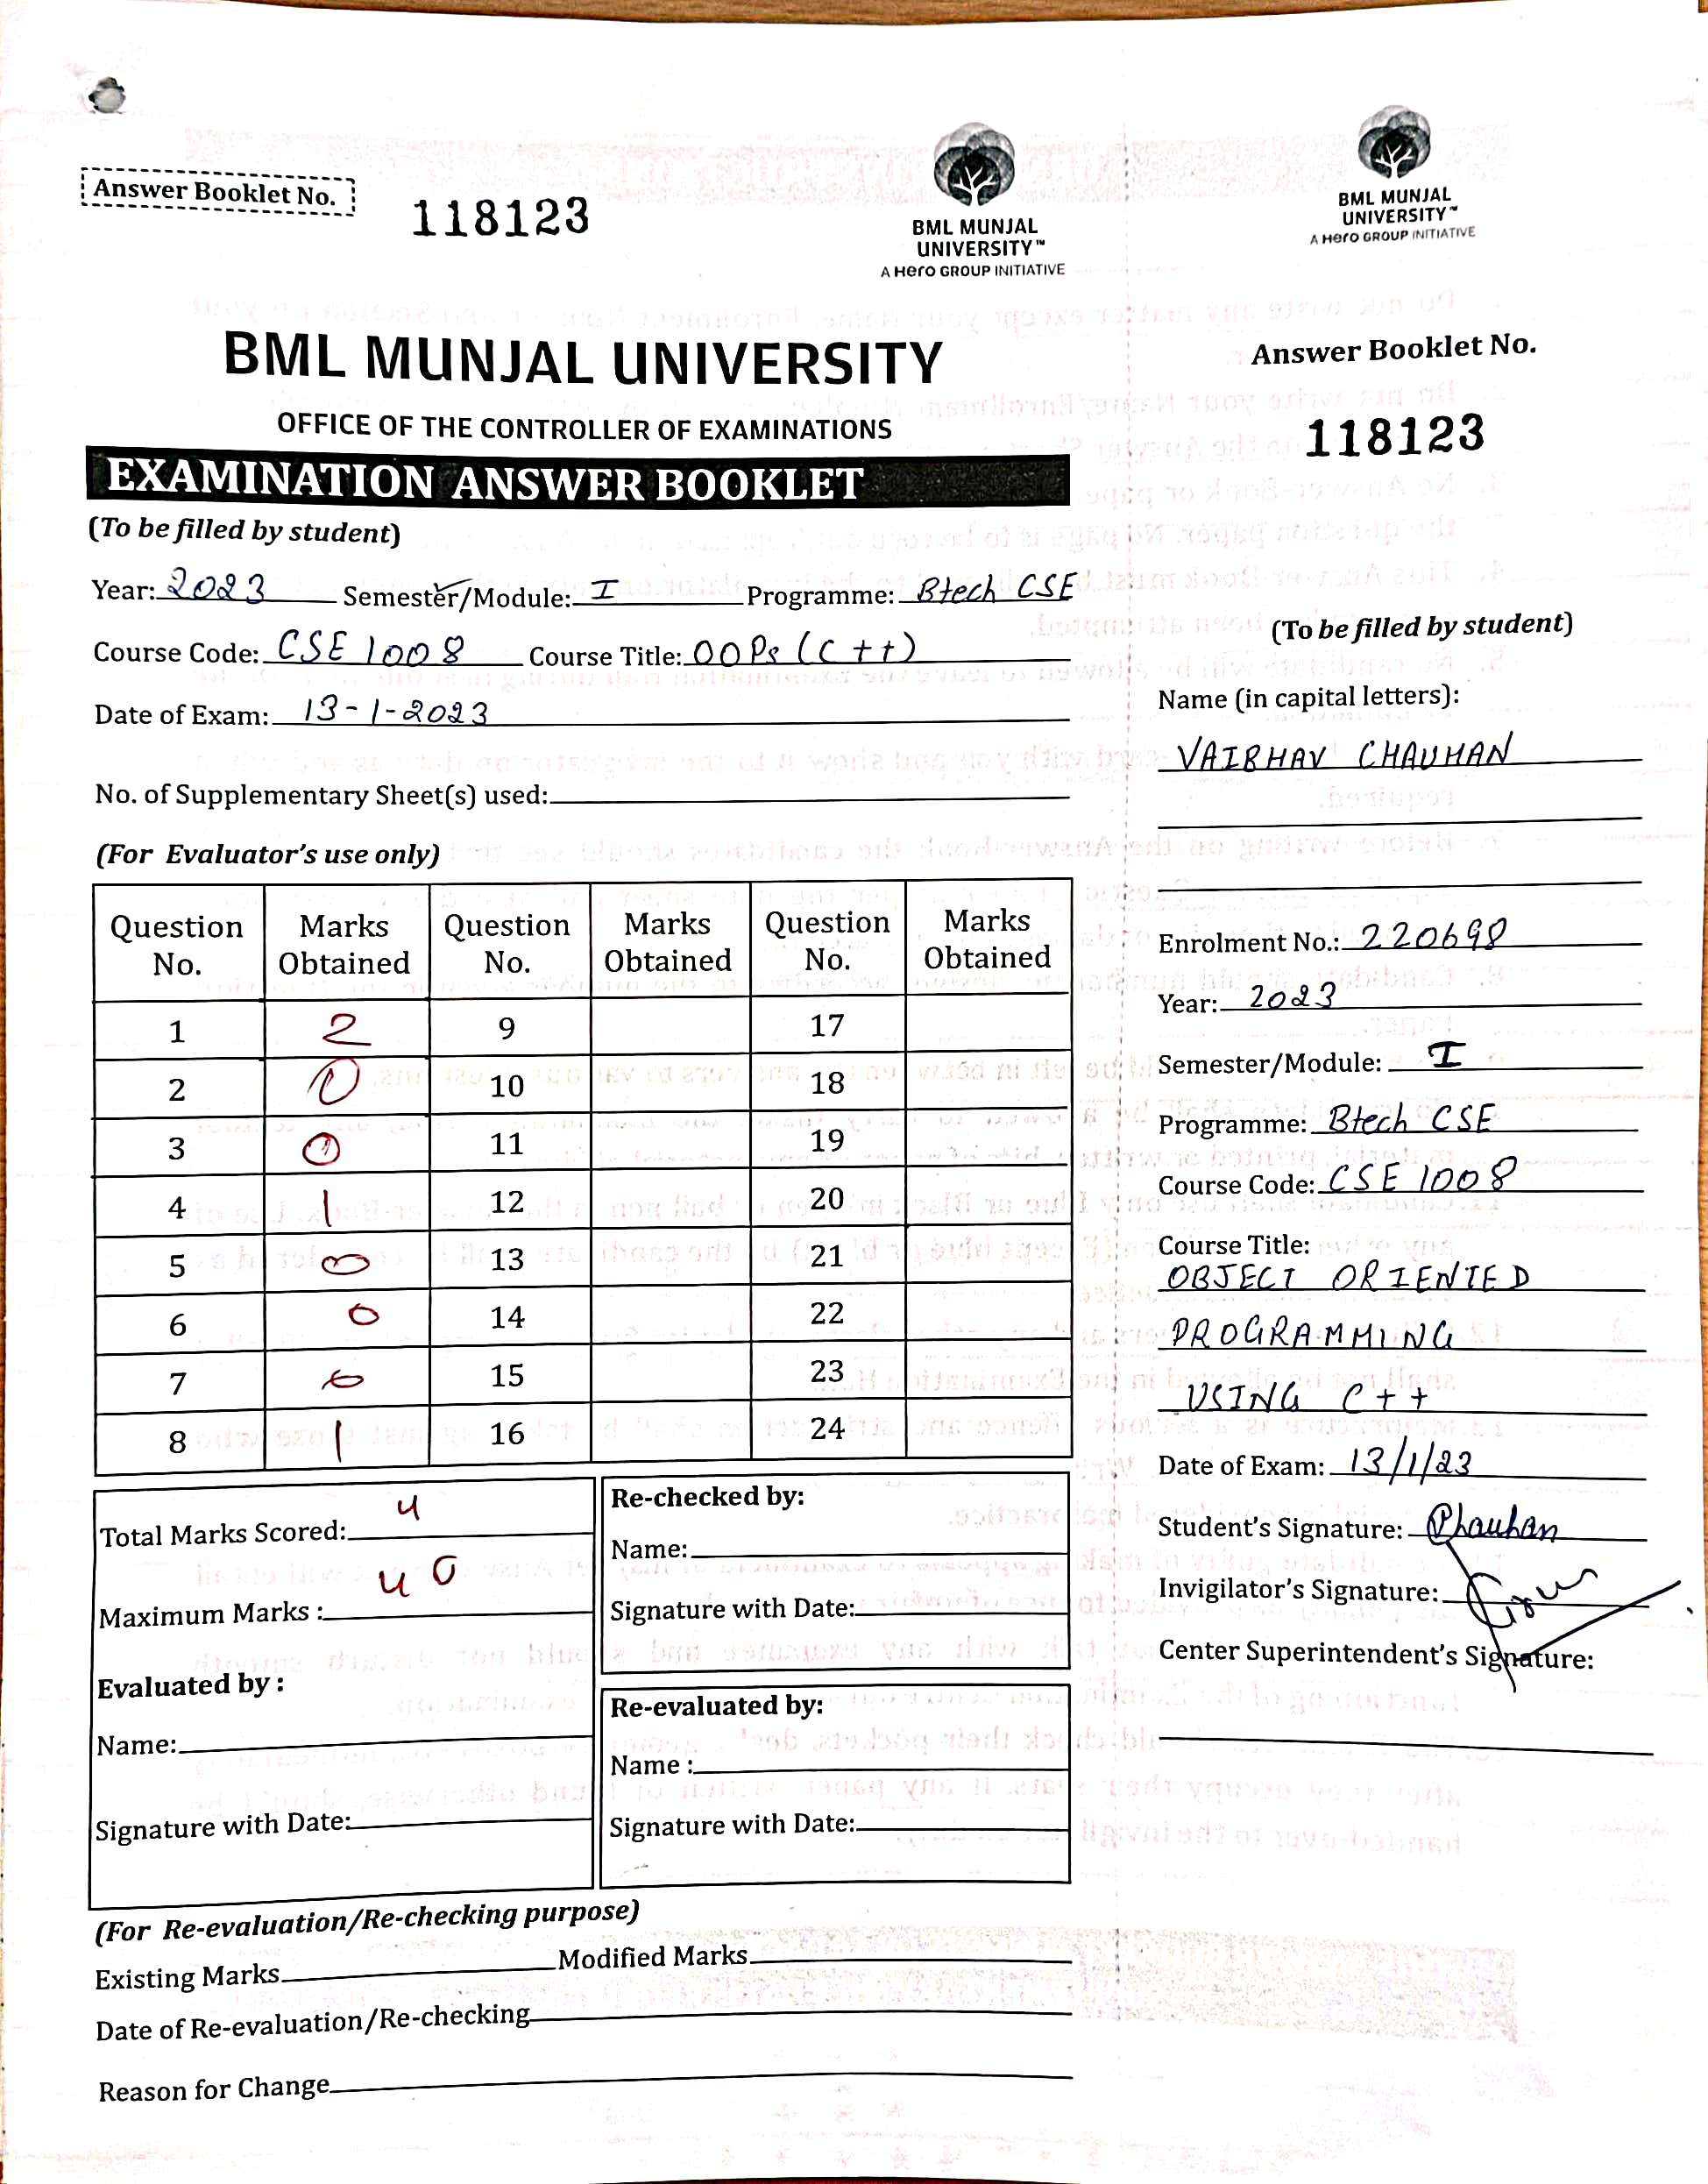 Answer Booklet No.
118123
BML MUNJAL
UNIVERSITY™
A Hero GROUP INITIATIVE
BML MUNJAL UNIVERSITY
OFFICE OF THE CONTROLLER OF EXAMINATIONS
EXAMINATION ANSWER BOOKLET
(To be filled by student)
Year: 2023 Semester/Module: I Programme: Btech CSE
Course Code: CSE 1008 Course Title: OOPs (C++)
Date of Exam: 13-1-2023
No. of Supplementary Sheet(s) used:
(For Evaluator's use only)
Question No. Marks Obtained Question No. Marks Obtained Question No. Marks Obtained
1 2 9 17
2 10 18
3 11 19
4 1 12 20
5 13 21
6 0 14 22
7 15 23
8 1 16 24
Total Marks Scored: 4
Maximum Marks : 40
Evaluated by :
Name:
Signature with Date:
Re-checked by:
Name:
Signature with Date:
Re-evaluated by:
Name :
Signature with Date:
(For Re-evaluation/Re-checking purpose)
Existing Marks Modified Marks
Date of Re-evaluation/Re-checking
Reason for Change
BML MUNJAL
UNIVERSITY™
A Hero GROUP INITIATIVE
Answer Booklet No.
118123
(To be filled by student)
Name (in capital letters):
VAIBHAV CHAUHAN
Enrolment No.: 220698
Year: 2023
Semester/Module: I
Programme: Btech CSE
Course Code: CSE 1008
Course Title:
OBJECT ORIENTED
PROGRAMMING
USING C++
Date of Exam: 13/1/23
Student's Signature: Chauhan
Invigilator's Signature:
Center Superintendent's Signature: